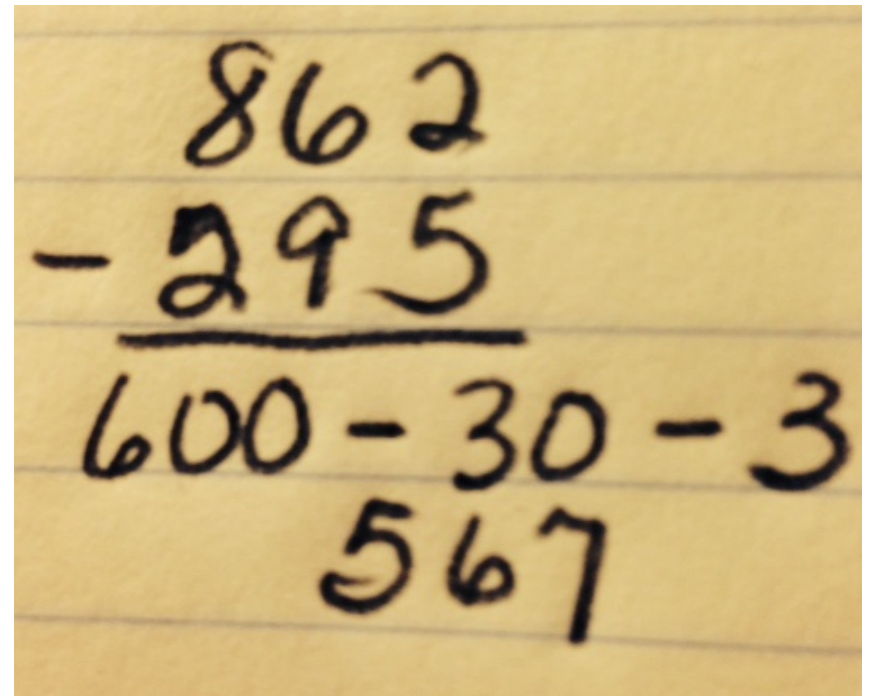 862
- 295
600 - 30 - 3
567